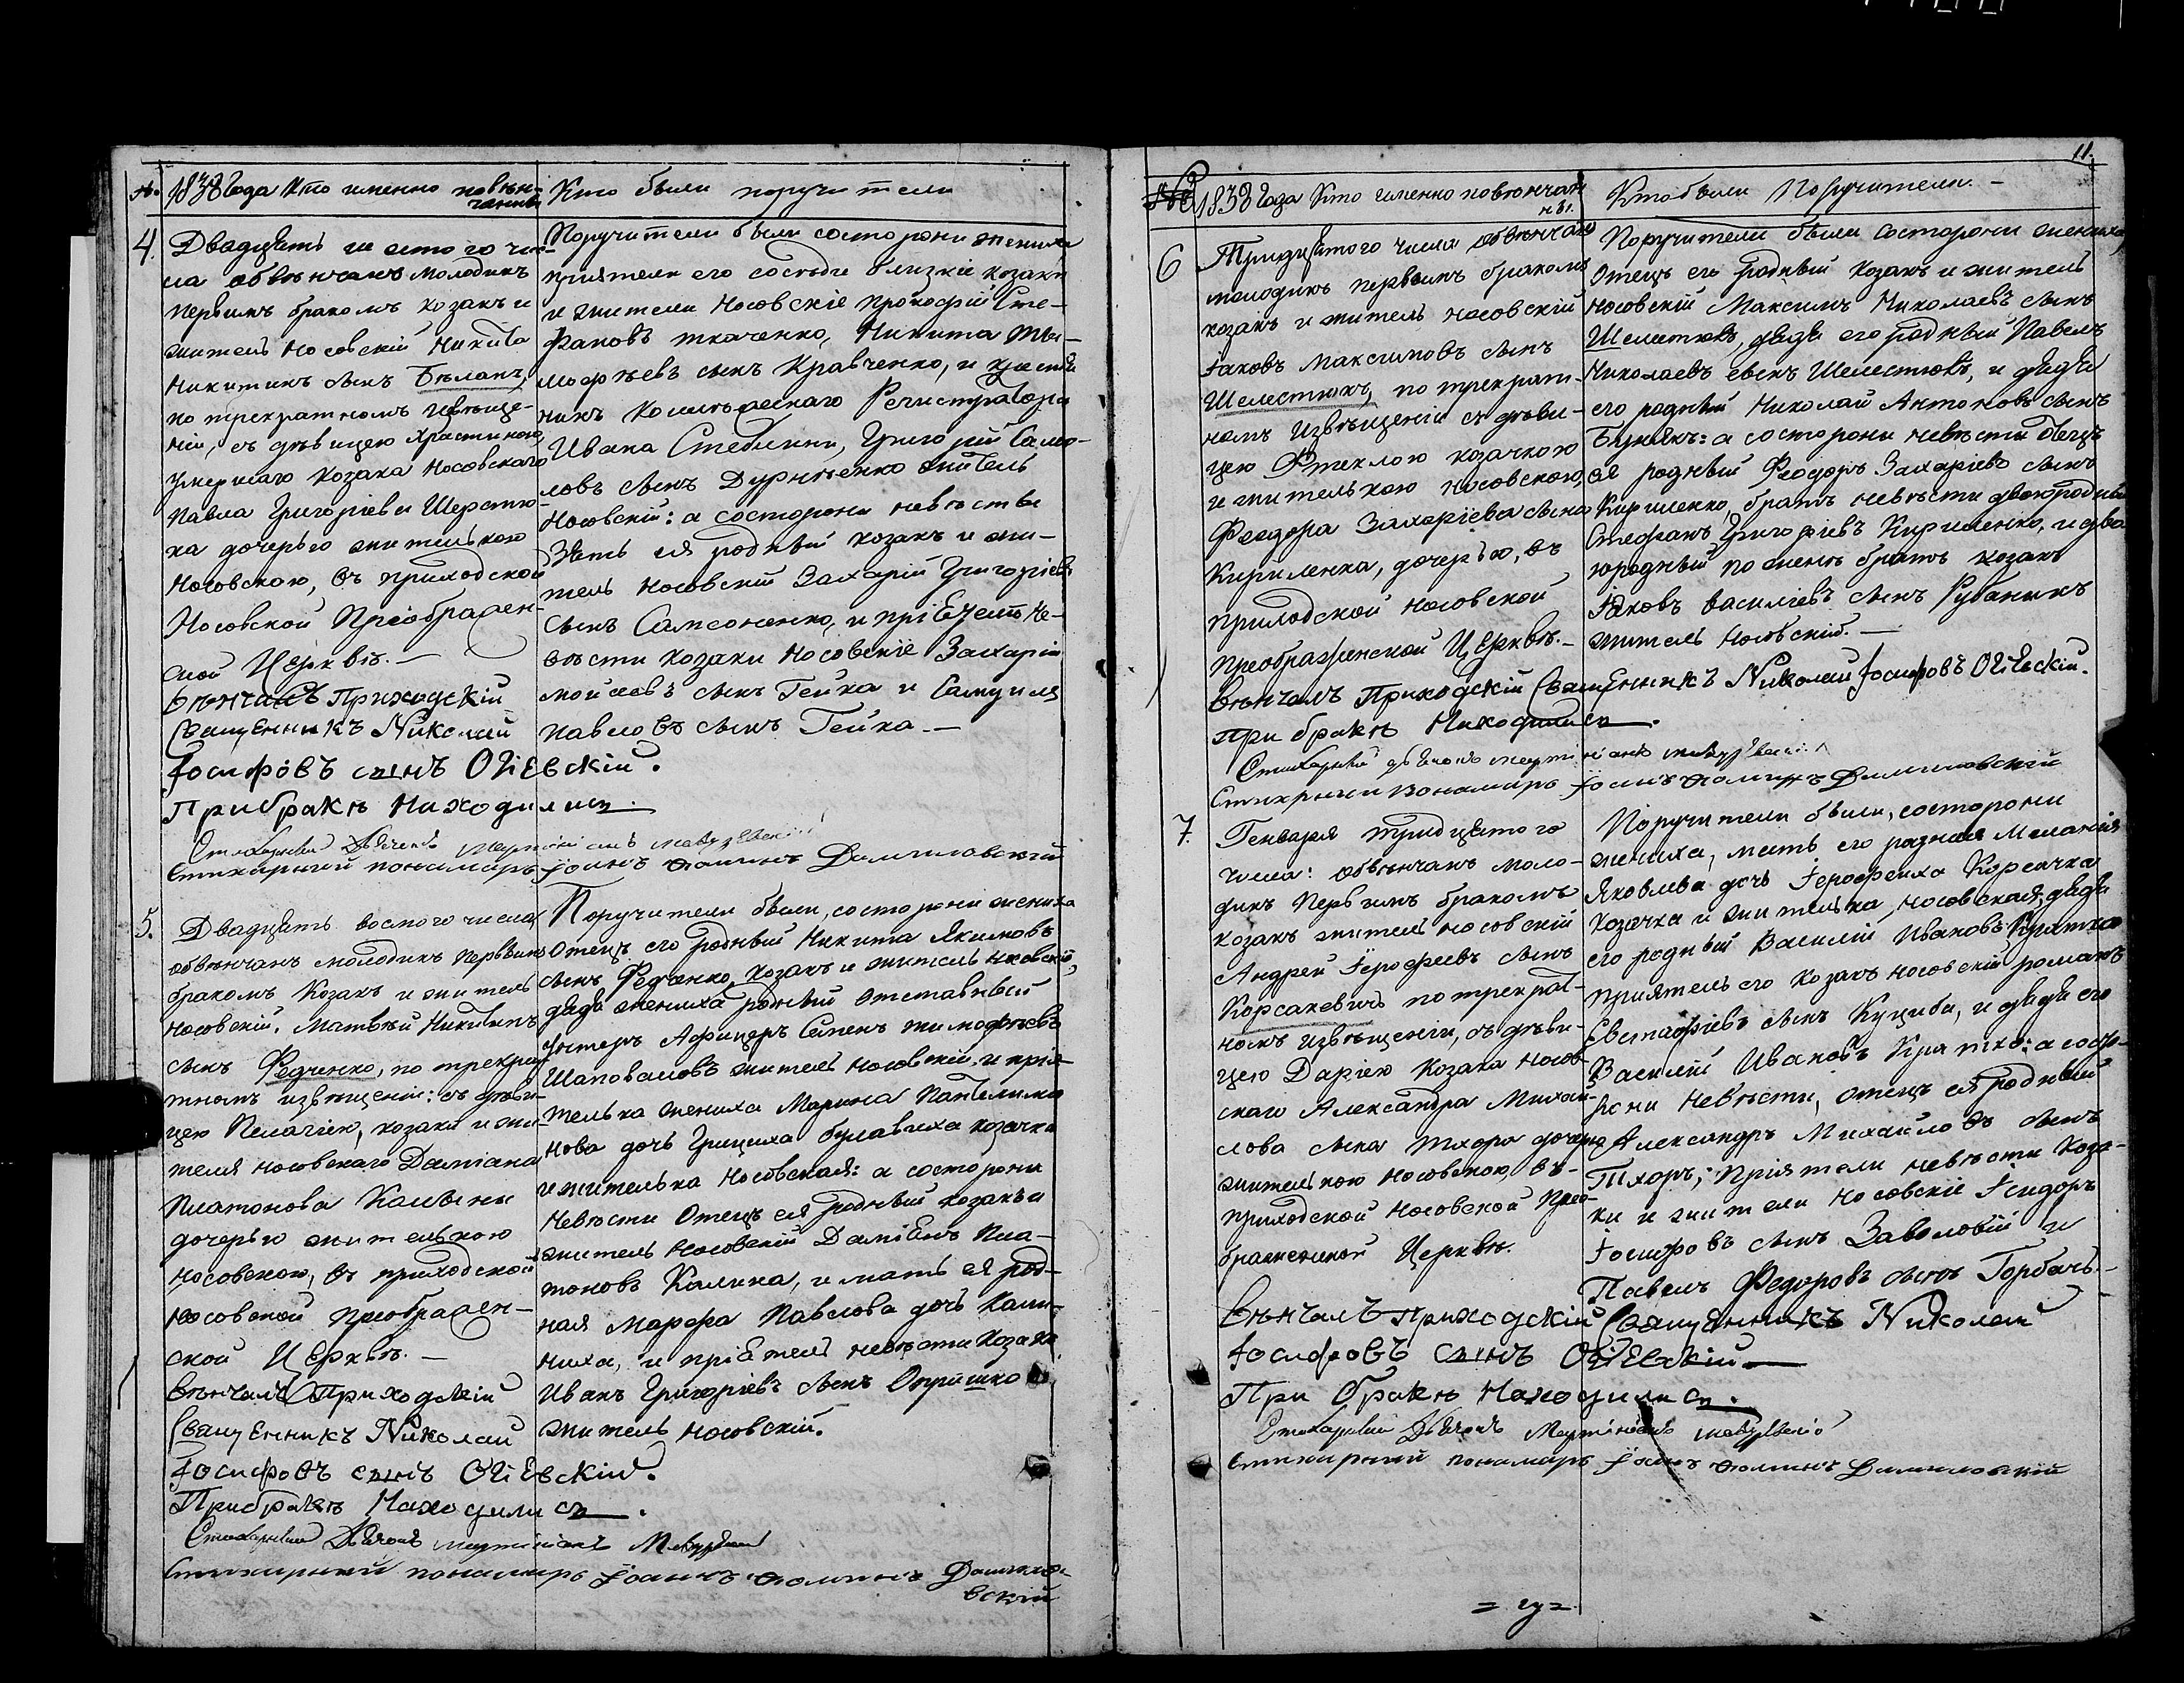 №. 1838 Года Кто именно повѣн-
чанны
Кто были поручители
4. Двадцять шестого чи-
сла обвѣнчанъ молодикъ
первимъ бракомъ козакъ и
житель Носовскій Никита
Никитинъ сынъ Бѣланъ,
по трекратномъ извѣще-
ніи, съ дѣвицею Христиною,
умершаго козака Носовскаго
Павла Григоріева Шерстю-
ка дочерью жителькою
Носовскою, въ приходской
Носовской Преображен-
ской Церквѣ. —
Вѣнчалъ Приходскій
Священникъ Николай
Іосифовъ сынъ Огіевскій.
При бракѣ Находились.
Стихарный Дьячокъ
Стихарный понамарь Іоанъ Фоминъ Даниловскій
Поручители были состороны жениха
приятели его сосѣди близкіе козаки
и жители Носовскіе Прокофій Сте-
фановъ Ткаченко, Никита Ти-
мофѣевъ сынъ Кравченко, и
Колежскаго Регистратора
Ивана Стеблина, Григорій Само-
ловъ сынъ Дурненко житель
Носовскій: а состороны невѣсты
Зять ея родный козакъ и жи-
тель Носовскій Захарій Григоріевъ
сынъ Самсоненко, и пріятели не-
вѣсти козаки Носовскіе Захарій
Мойсеевъ сынъ Гейка и Самуилъ
Павловъ сынъ Гейка. —
5. Двадцять восмого числа
обвѣнчанъ молодикъ первымъ
бракомъ Козакъ и житель
Носовскій, Матвѣй Никитинъ
сынъ Федченко, по трекра-
тномъ извѣщеніи: съ дѣви-
цею Пелагіею, козака и жи-
теля Носовскаго Даміана
Платонова Калины
дочерью жителькою
Носовскою, въ приходской
Носовской Преображен-
ской Церквѣ. —
Вѣнчалъ Приходскій
Священникъ Николай
Іосифовъ сынъ Огіевскій.
При бракѣ Находились.
Стихарный Дьячокъ Мартиніанъ
Стихарный понамарь Іоанъ Фоминъ Данило-
вскій
Поручители были, состорони жениха
Отецъ его родный Никита Якимовъ
сынъ Федченко, козакъ и житель Носовскій,
дядя жениха родный отставный
унтеръ Афицеръ Семенъ Тимофѣевъ
Шаповаловъ житель Носовскій, и прія-
телька жениха Марина Пантелимо-
нова дочь Грициха булавиха козачка
и жителька Носовская: а состороны
Невѣсти Отецъ ея родный козакъ и
житель Носовскій Даміянъ Пла-
тоновъ Калина, и мать ея род-
ная Марфа Павлова дочь Кали-
ниха, и пріятель невѣсти козакъ
Иванъ Григоріевъ сынъ Опришко
житель Носовскій.
11.
1838 Года Кто именно повѣнчан-
ны.
Кто были Поручители. —
6 Тридцятого числа обвѣнчанъ
молодикъ первымъ бракомъ
козакъ и житель Носовскій
Іаковъ Максимовъ сынъ
Шелестюкъ, по трекрат-
номъ извѣщеніи съ дѣви-
цею Феклою козачкою
и жителькою Носовскою,
Феодора Захаріева сына
Кириленка, дочерью, въ
приходской Носовской
Преображенской Церквѣ. —
Вѣнчалъ Приходскій Священникъ Николай Іосифовъ Огіевскій.
При бракѣ Находились.
Стихарный дьячокъ Мартиніанъ
Стихарный понамарь Іоанъ Фоминъ Даниловскій
Поручители были состороны жениха,
Отецъ его родный козакъ и житель
Носовскій Максимъ Николаевъ сынъ
Шелестюкъ, дядя его родный Павелъ
Николаевъ сынъ Шелестюкъ, и дядя
его родный Николай Антоновъ сынъ
Бунякъ: а состороны невѣсти Отецъ
ея родный Феодоръ Захаріевъ сынъ
Кириленко, братъ невѣсти двоюродный
Стефанъ Григоріевъ Кириленко, и дво-
юродный по женѣ братъ козакъ
Іаковъ Василіевъ сынъ Рубаникъ
житель Носовскій. —
7. Генваря тридцятого
числа: обвѣнчанъ моло-
дикъ первимъ бракомъ
козакъ житель Носовскій
Андрей Іерофеевъ сынъ
Корсакевичъ по трекрат-
номъ извѣщеніи, съ дѣви-
цею Даріею козака Носов-
скаго Александра Михай-
лова сына Тхора дочерью
жителькою Носовскою, въ
приходской Носовской Прео-
браженской Церквѣ.
Вѣнчалъ Приходскій Священникъ Николай
Іосифовъ сынъ Огіевскій
При бракѣ Находились.
Стихарный Дьячокъ Мартиніанъ
Стихарный понамарь Іоанъ Фоминъ Даниловскій
Поручители были, состороны
жениха, мать его родная Меланія
Яковлева дочь Іерофеиха Корсачка
козачка и жителька Носовская, дядя
его родный Василій Ивановъ Крятко
приятель его козакъ Носовскій романъ
Евстафіевъ сынъ Куциба, и дядя его
Василій Ивановъ Крятко: а состо-
рони Невѣсти, отецъ ея родный
Александръ Михайловъ сынъ
Тхоръ; Пріятели невѣсти Коза-
ки и жители Носовскіе Ісидоръ
Іосифовъ сынъ Заволокій и
Павелъ Федоровъ сынъ Горбачъ —